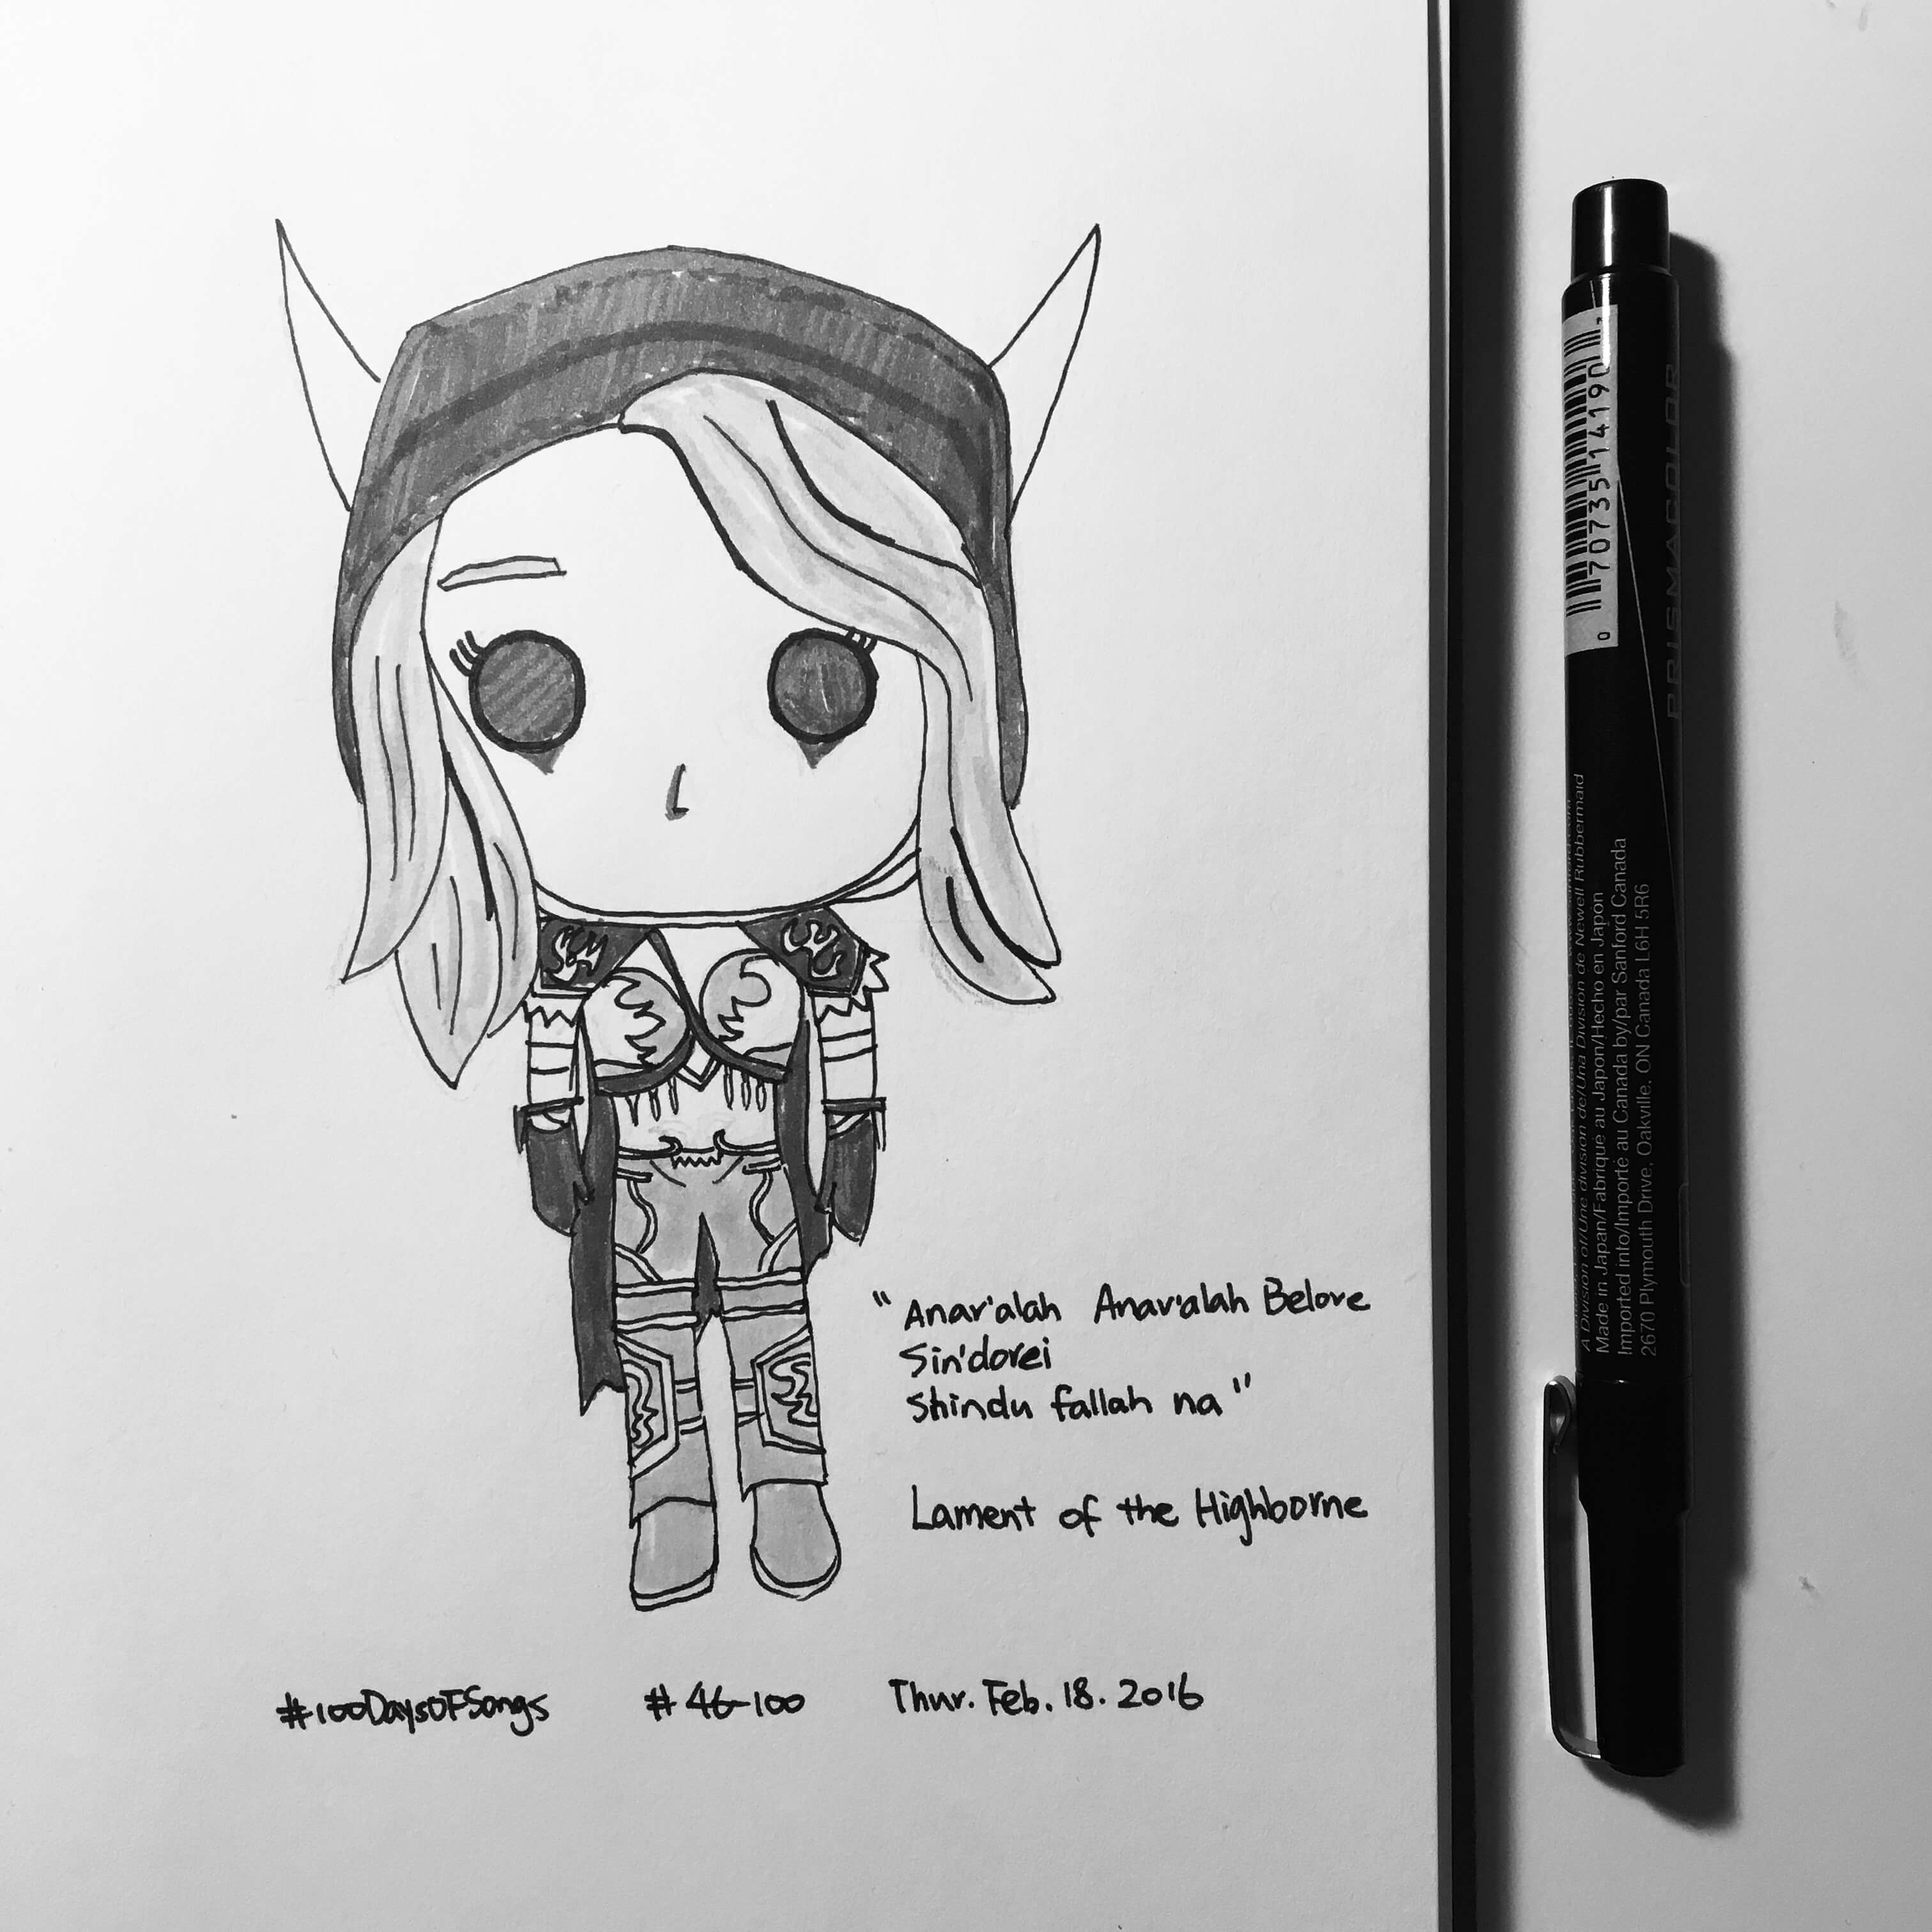 "Anar'alah Anar'alah Belore
Sin'dorei
Shindu fallah na"
Lament of the Highborne
#100DaysOfSongs #46-100 Thur. Feb. 18. 2016
0 70735 14190
PRISMACOLOR
A Division of/Une division de/Una Division de Newell Rubbermaid
Made in Japan/Fabriqué au Japon/Hecho en Japon
Imported into/Importé au Canada by/par Sanford Canada
2670 Plymouth Drive, Oakville, ON Canada L6H 5R6